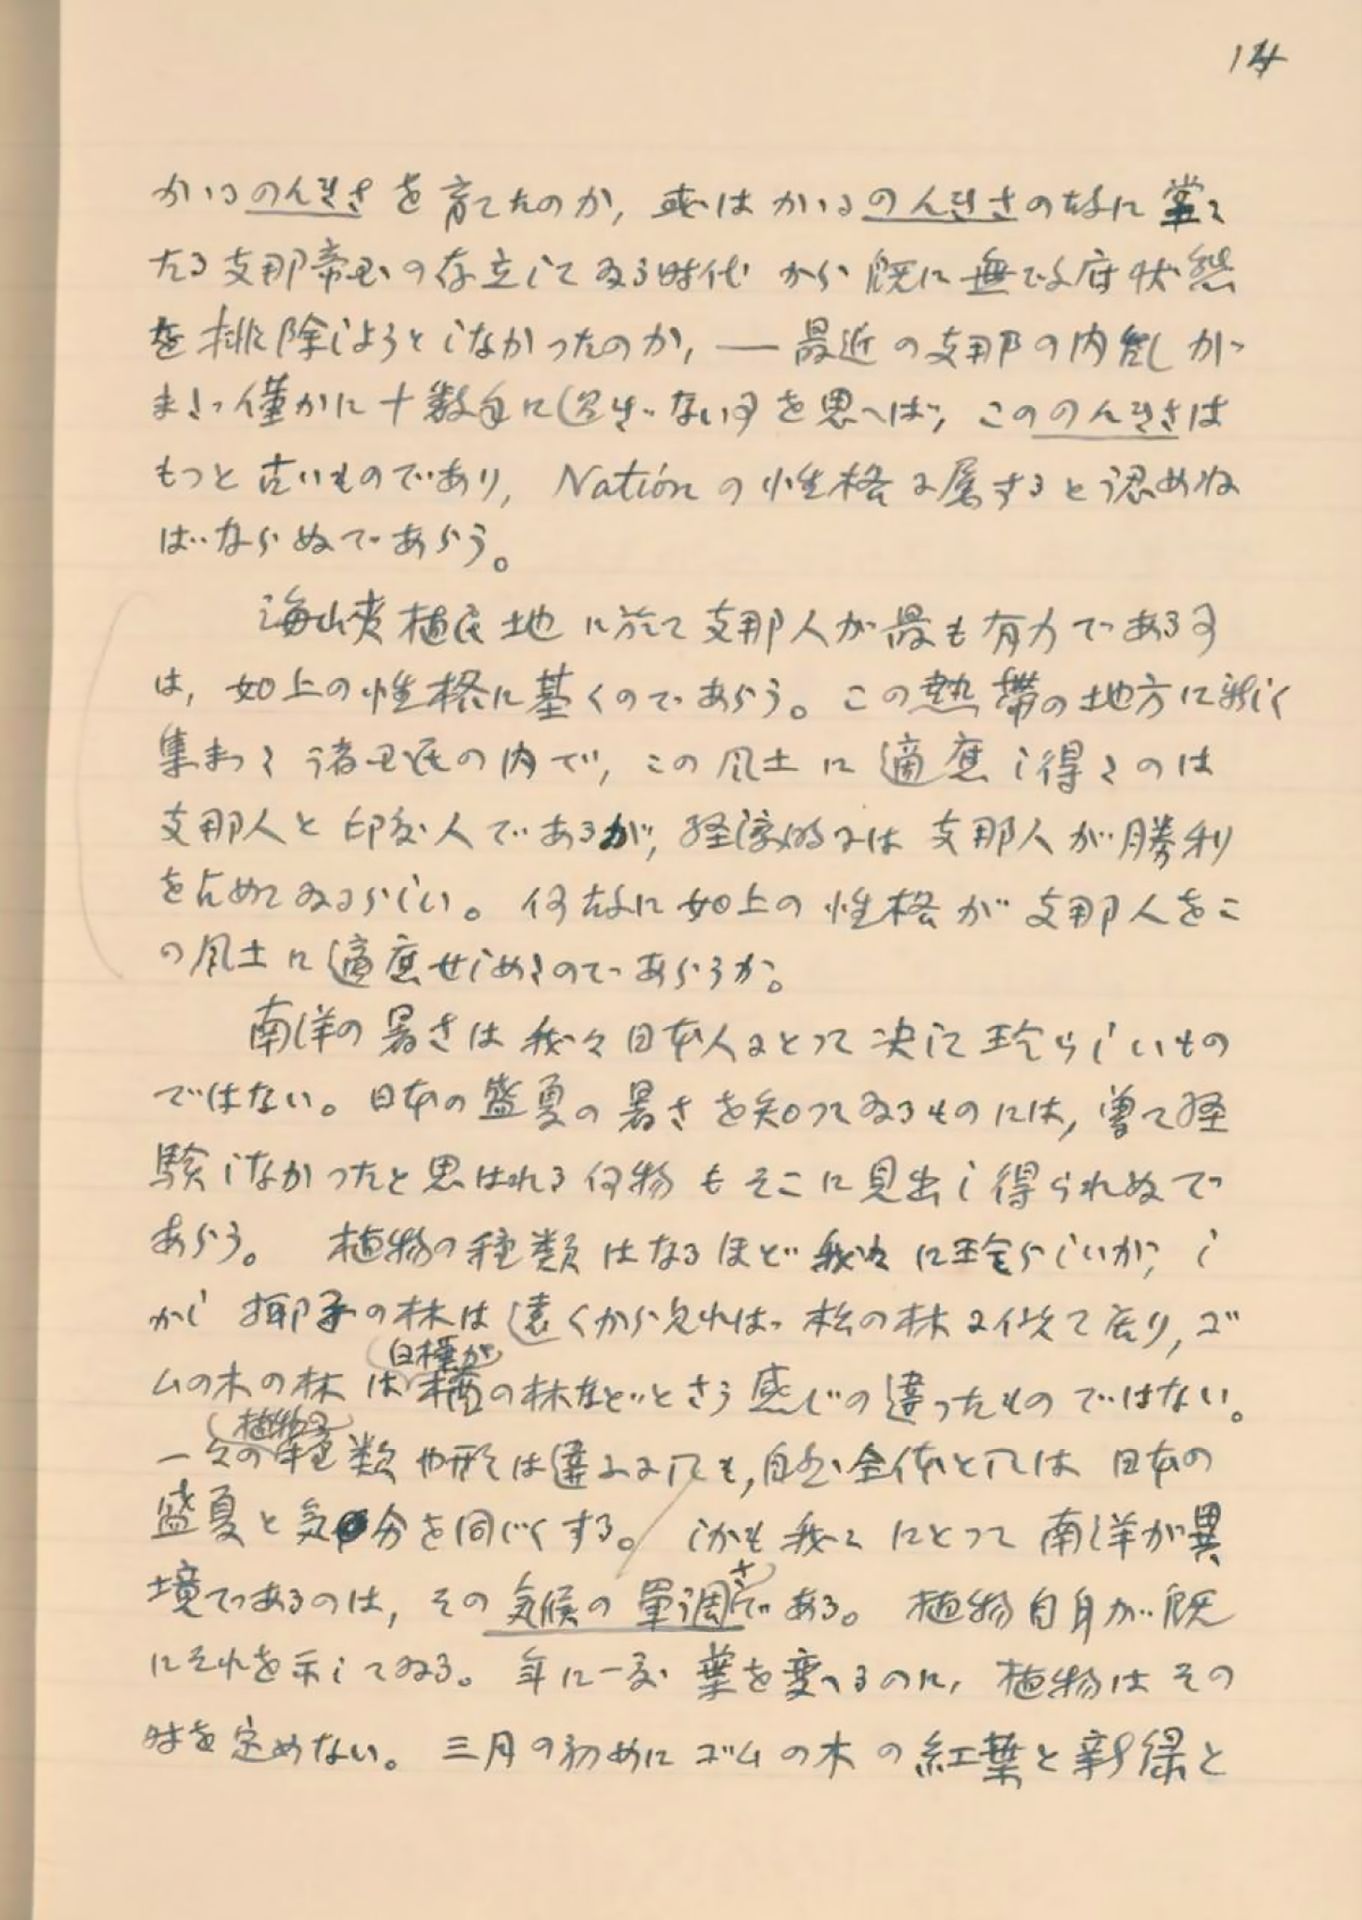 14
かゝるのんきさを育てたのか, 或はかゝるのんきさの故に堂々
たる支那帝国の存立してゐる時代から既に無政府状態
を排除しようとしなかったのか, ― 最近の支那の内乱が
まだ僅かに十数年に過ぎない事を思へば, こののんきさは
もっと古いものであり, Nationの性格に属すると認めね
ばならぬであらう。
海峡植民地に於て支那人が最も有力である事
は, 如上の性格に基くのであらう。この熱帯の地方に新しく
集まった諸国民の内で, この風土に適應し得たのは
支那人と印度人であるが, 経済的には支那人が勝利
を占めてゐるらしい。何故に如上の性格が支那人をこ
の風土に適應せしめたのであらうか。
南洋の暑さは我々日本人にとって決して珍らしいもの
ではない。日本の盛夏の暑さを知ってゐるものには, 曽て経
験しなかったと思はれる何物もそこに見出し得られぬで
あらう。 植物の種類はなるほど我々に珍らしいが, し
かし椰子の林は遠くから見れば松の林に似て居り, ゴ
白樺が
ムの木の林はの林などとさう感じの違ったものではない。
植物の
一々の種類や形は違ふにしても, 自然全体としては日本の
盛夏と気分を同じくする。しかも我々にとって南洋が異
さ
境であるのは, その気候の單調である。 植物自身が既
にそれを示してゐる。年に一度葉を変へるのに, 植物はその
時を定めない。三月の初めにゴムの木の紅葉と新緑と